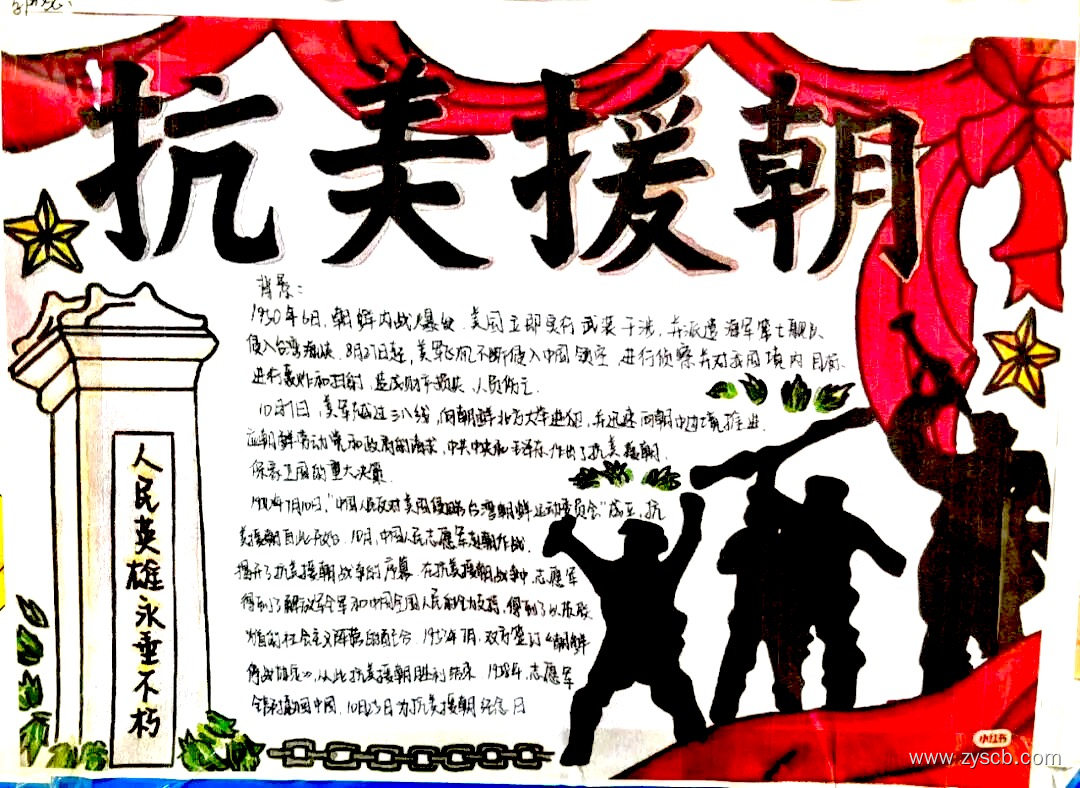 抗美援朝
背景:
1950年6月,朝鲜内战爆发.美国立即实行武装干涉,并派遣海军第七舰队
侵入台湾海峡.8月27日起,美军飞机不断侵入中国领空,进行侦察并对我国境内目标
进行轰炸和扫射,造成财产损失、人员伤亡.
10月1日,美军越过三八线,向朝鲜北方大举进犯,并迅速向朝中边境推进.
应朝鲜劳动党和政府的请求,中共中央和毛泽东作出了抗美援朝
保家卫国的重大决策
年7月10日,"中国人民反对美国侵略台湾朝鲜运动委员会"成立,抗
美援朝自此开始.10月,中国人民志愿军赴朝作战.
揭开了抗美援朝战争的序幕.在抗美援朝战争中,志愿军
得到了解放军全军和中国全国人民的全力支持,得到了以苏联
为首的社会主义阵营的配合.1953年7月,双方签订《朝鲜
停战协定》,从此抗美援朝胜利结束.1958年,志愿军
全部撤回中国.10月25日为抗美援朝纪念日
人民英雄永垂不朽
小红书
www.zyscb.com